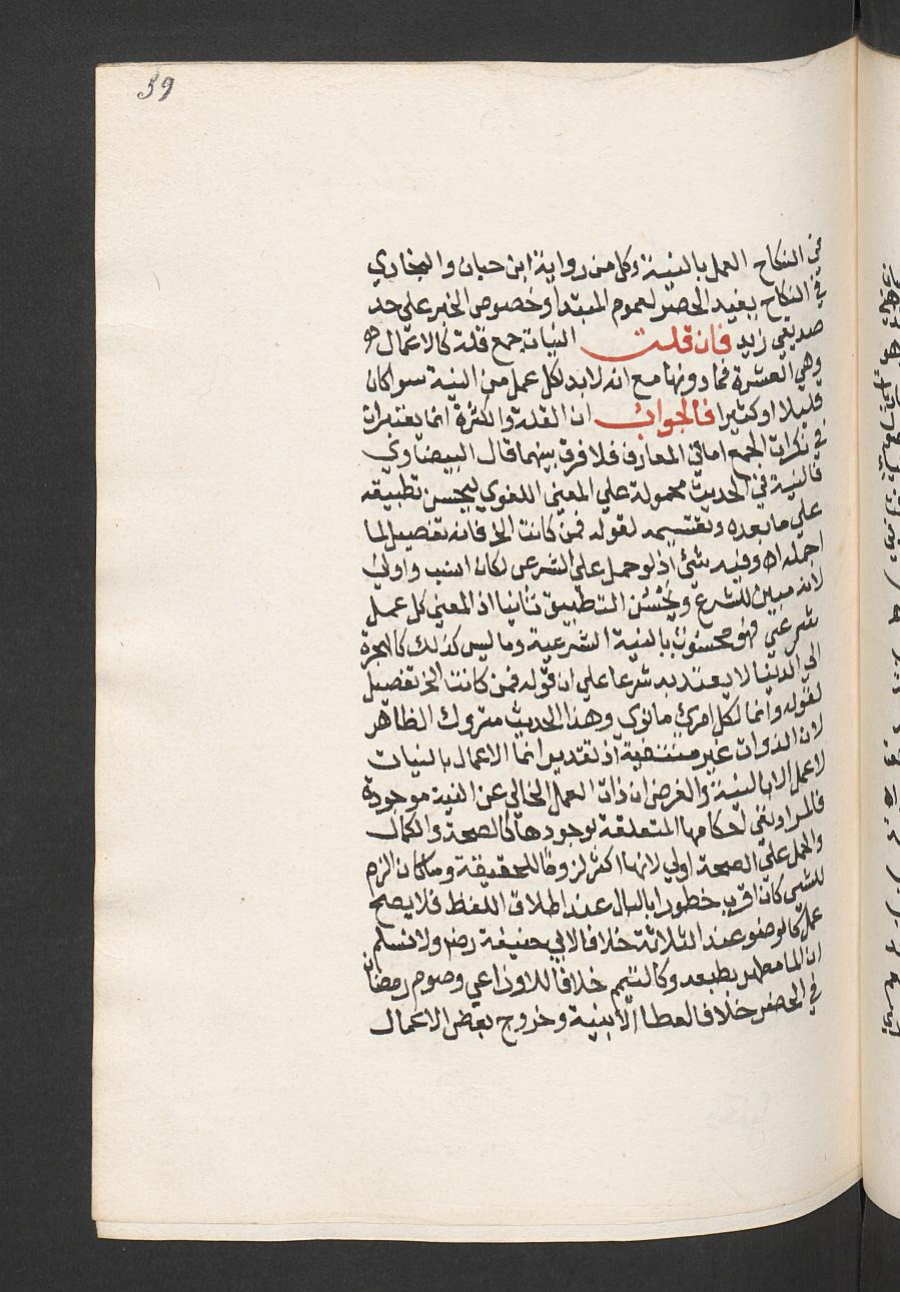 39
في النكاح العمل بالنية وكل من رواية ابن حبان والبخاري
في النكاح يفيد الحصر لعموم المبتدا وخصوص الخبر على حد
صديقي زيد فان قلت النيات جمع قلة كالاعمال
وهي العشرة فما دونها مع انه لا بد لكل عمل من النية سوا كان
قليلا او كثيرا فالجواب ان القلة والكثرة انما يعتبران
في نكرات الجمع اما في المعارف فلا فرق بينهما قال البيضاوي
فالنية في الحديث محمولة علي المعني اللغوي ليحسن تطبيقه
علي ما بعده وتقسيمه لقوله فمن كانت الخ فانه تفصيل لما
اجمله اه وفيه شئ اذ لو حمل علي الشرعي لكان انسب واولي
لانه مبين للشرع ويحسن التطبيق ثانيا اذ المعني كل عمل
شرعي فهو محسوب بالنية الشرعية وما ليس كذلك كالهجرة
الي الدنيا لا يعتد به شرعا علي ان قوله فمن كانت الخ تفصيل
لقوله وانما لكل امرئ ما نوى وهذا الحديث متروك الظاهر
لان الذوات غير منتفية اذ تقدير انما الاعمال بالنيات
لا عمل الا بالنية والغرض ان ذات العمل الخالي عن النية موجودة
فالمراد نفي احكامها المتعلقة بوجودها كالصحة والكمال
والحمل على الصحة اولي لانها اكثر لزوما للحقيقة وما كان الزم
للشي كان اقرب خطورا بالبال عند اطلاق اللفظ فلا يصح
عمل كالوضوء عند الثلاثة خلافا لابي حنيفة رضه ولا نسلم
ان الما مطهر بطبعه وكالتيمم خلافا للاوزاعي وصوم رمضان
في الحضر خلافا لعطا الا بنية وخروج بعض الاعمال